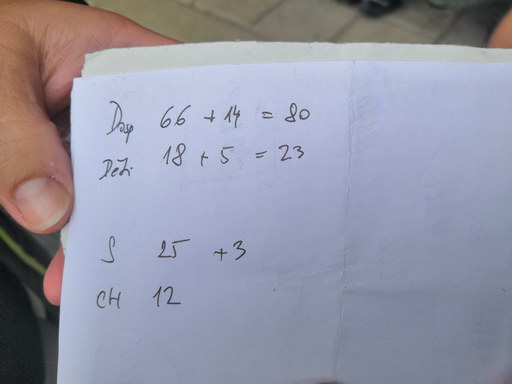 Dosp 66 + 14 = 80
Děti 18 + 5 = 23
S 25 +3
CH 12